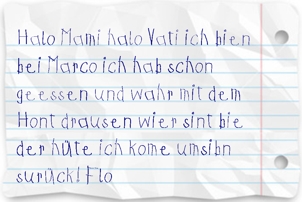 Halo Mami halo Vati ich bien
bei Marco ich hab schon
geessen und wahr mit dem
Hont drausen wier sint bie
der hüte ich kome umsibn
surück! Flo